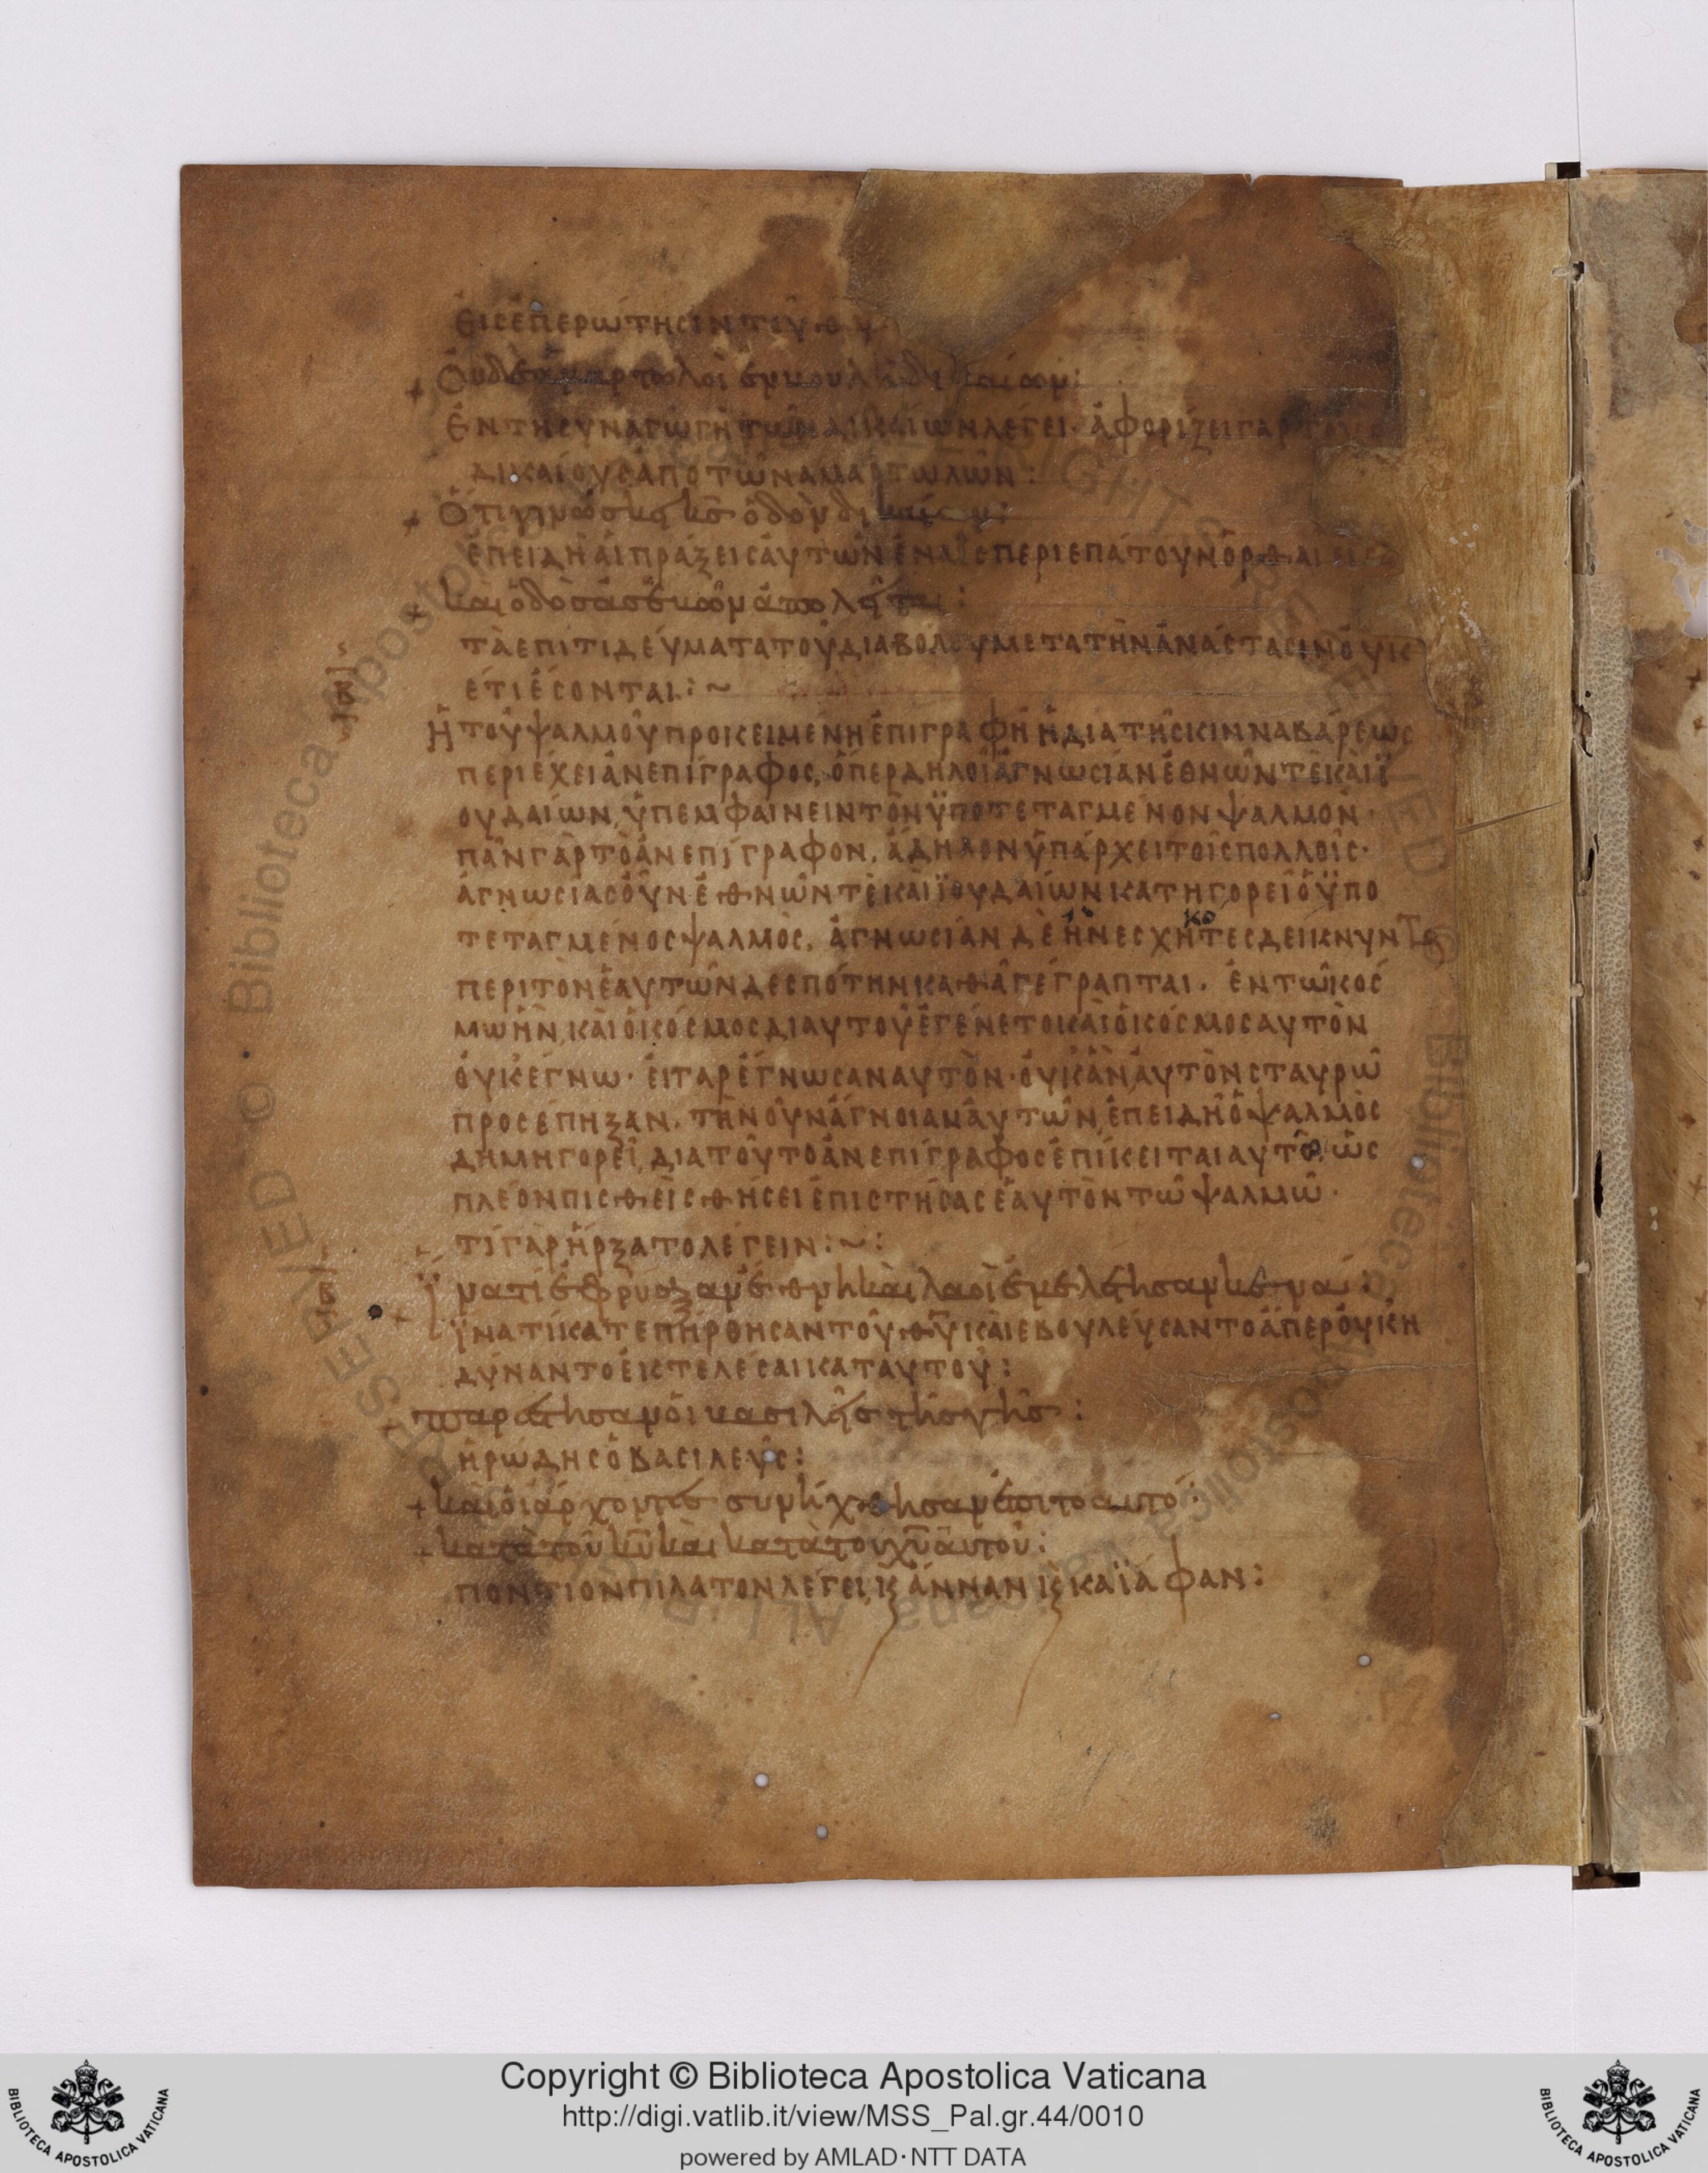 ἐις ἐπερώτησιν τοῦ θυ
+ Ὀυδὲ ἁμαρτωλοὶ ἐν βουλῆ δικαίων:
Ἐν τῆ συναγωγῆ τῶν δικαίων λέγει· ἀφορίζει γὰρ τοὺς
δικαίους ἀπο τῶν ἁμαρτωλῶν:
+ Ὅτι γινώσκει κς ὁδὸν δικαίων:
ἐπειδὴ ἁι πράξεις ἀυτῶν ἐν
περιεπάτουν
+ και ὁδὸς ἀσεβῶν ἀπολεῖται:
τὰ ἐπιτιδέυματα τοῦ διαβόλου μετα τὴν ἀνάστασιν ὀυκ
ἐτι ἔσονται:~
β
Ἡ τοῦ ψαλμοῦ προκειμένη ἐπιγραφὴ ἡ δια τῆς κινναβάρεως
περιέχει ἀνεπίγραφος, ὅπερ δηλοῖ ἀγνωσίαν ἐθνῶν τὲ καὶ ϊ
ουδαίων, ὑπεμφαίνειν τὸν ϋποτεταγμένον ψαλμόν·
πᾶν γὰρ τὸ ἀνεπίγραφον, ἄδηλον ϋπάρχει τοῖς πολλοῖς·
ἀγνωσίας ὀῦν ἐθνῶν τὲ καὶ ϊουδαίων κατηγορεῖ ὁ ϋπο
τεταγμένος ψαλμός, ἀγνωσίαν δὲ ἣν ἐσχηκότες δεικνυντ
περι τὸν ἑαυτῶν δεσπότην καθὰ γέγραπται· ἐν τῶ κόσ
μω ἦν, και ὁ κόσμος δι αυτοῦ ἐγένετο και ὁ κόσμος αυτὸν
ὀυκ ἔγνω· ἐι γαρ ἔγνωσαν αυτὸν· ὀυκ ἂν ἀυτὸν σταυρῶ
προσέπηξαν· τὴν ὀῦν ἄγνοιαν ἀυτῶν, ἐπειδὴ ὁ ψαλμὸς
δημηγορεῖ, δια τοῦτο ἀνεπίγραφος ἐπίκειται αυτῶ, ὡς
πλέον πισθεὶς θήσει ἐπιστήσας ἑαυτὸν τῶ ψαλμῶ·
τί γὰρ ἤρξατο λέγειν:~:
β
+ Ϊνατί ἐφρύαξαν ἔθνη καὶ λαοὶ ἐμελέτησαν κενά:
ϊνατί κατεπήρθησαν τοῦ θυ και εβουλέυσαντο ἅπερ ὀυκ ἠ
δύναντο ἐκτελέσαι κατ αυτοῦ:
+ παρέστησαν ὁι βασιλεῖς τῆς γῆς:
ἡρώδης ὁ βασιλεύς:
+ και ὁι άρχοντες συνήχθησαν ἐπιτοαυτό:
+ κατὰ τοῦ κυ και κατὰ του χυ ἀυτοῦ:
ποντιον πιλατον λέγει, κ ἄνναν κ καϊάφαν:
Copyright © Biblioteca Apostolica Vaticana
http://digi.vatlib.it/view/MSS_Pal.gr.44/0010
powered by AMLAD·NTT DATA
BIBLIOTECA APOSTOLICA VATICANA
BIBLIOTECA APOSTOLICA VATICANA